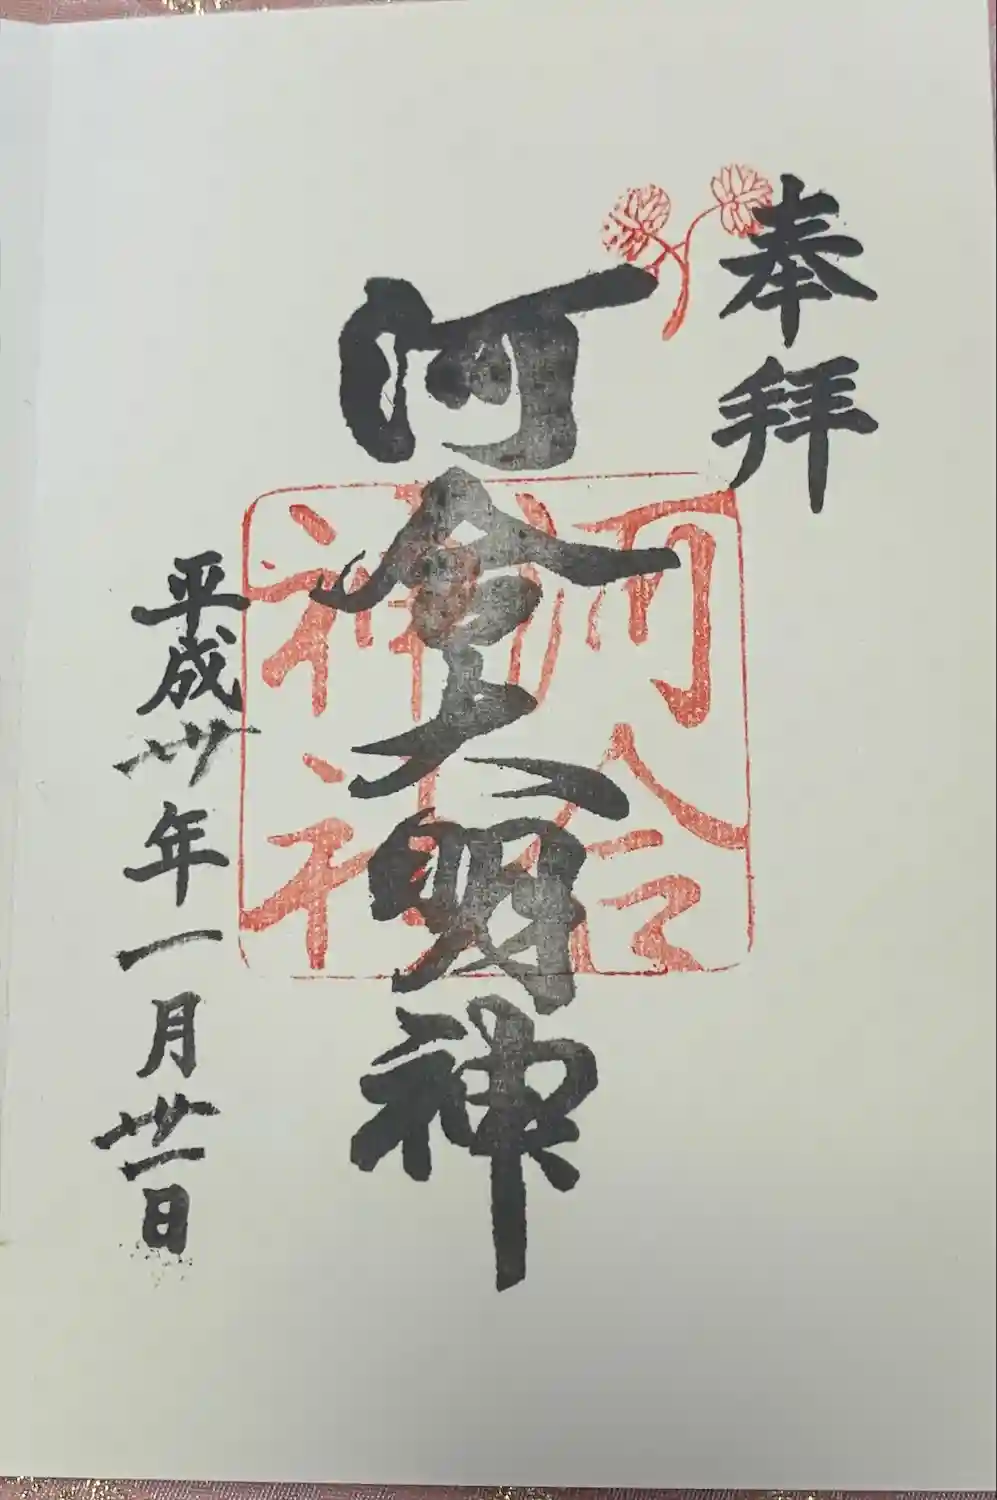 奉拝
河合大明神
河合
神社
平成卅年一月卅一日